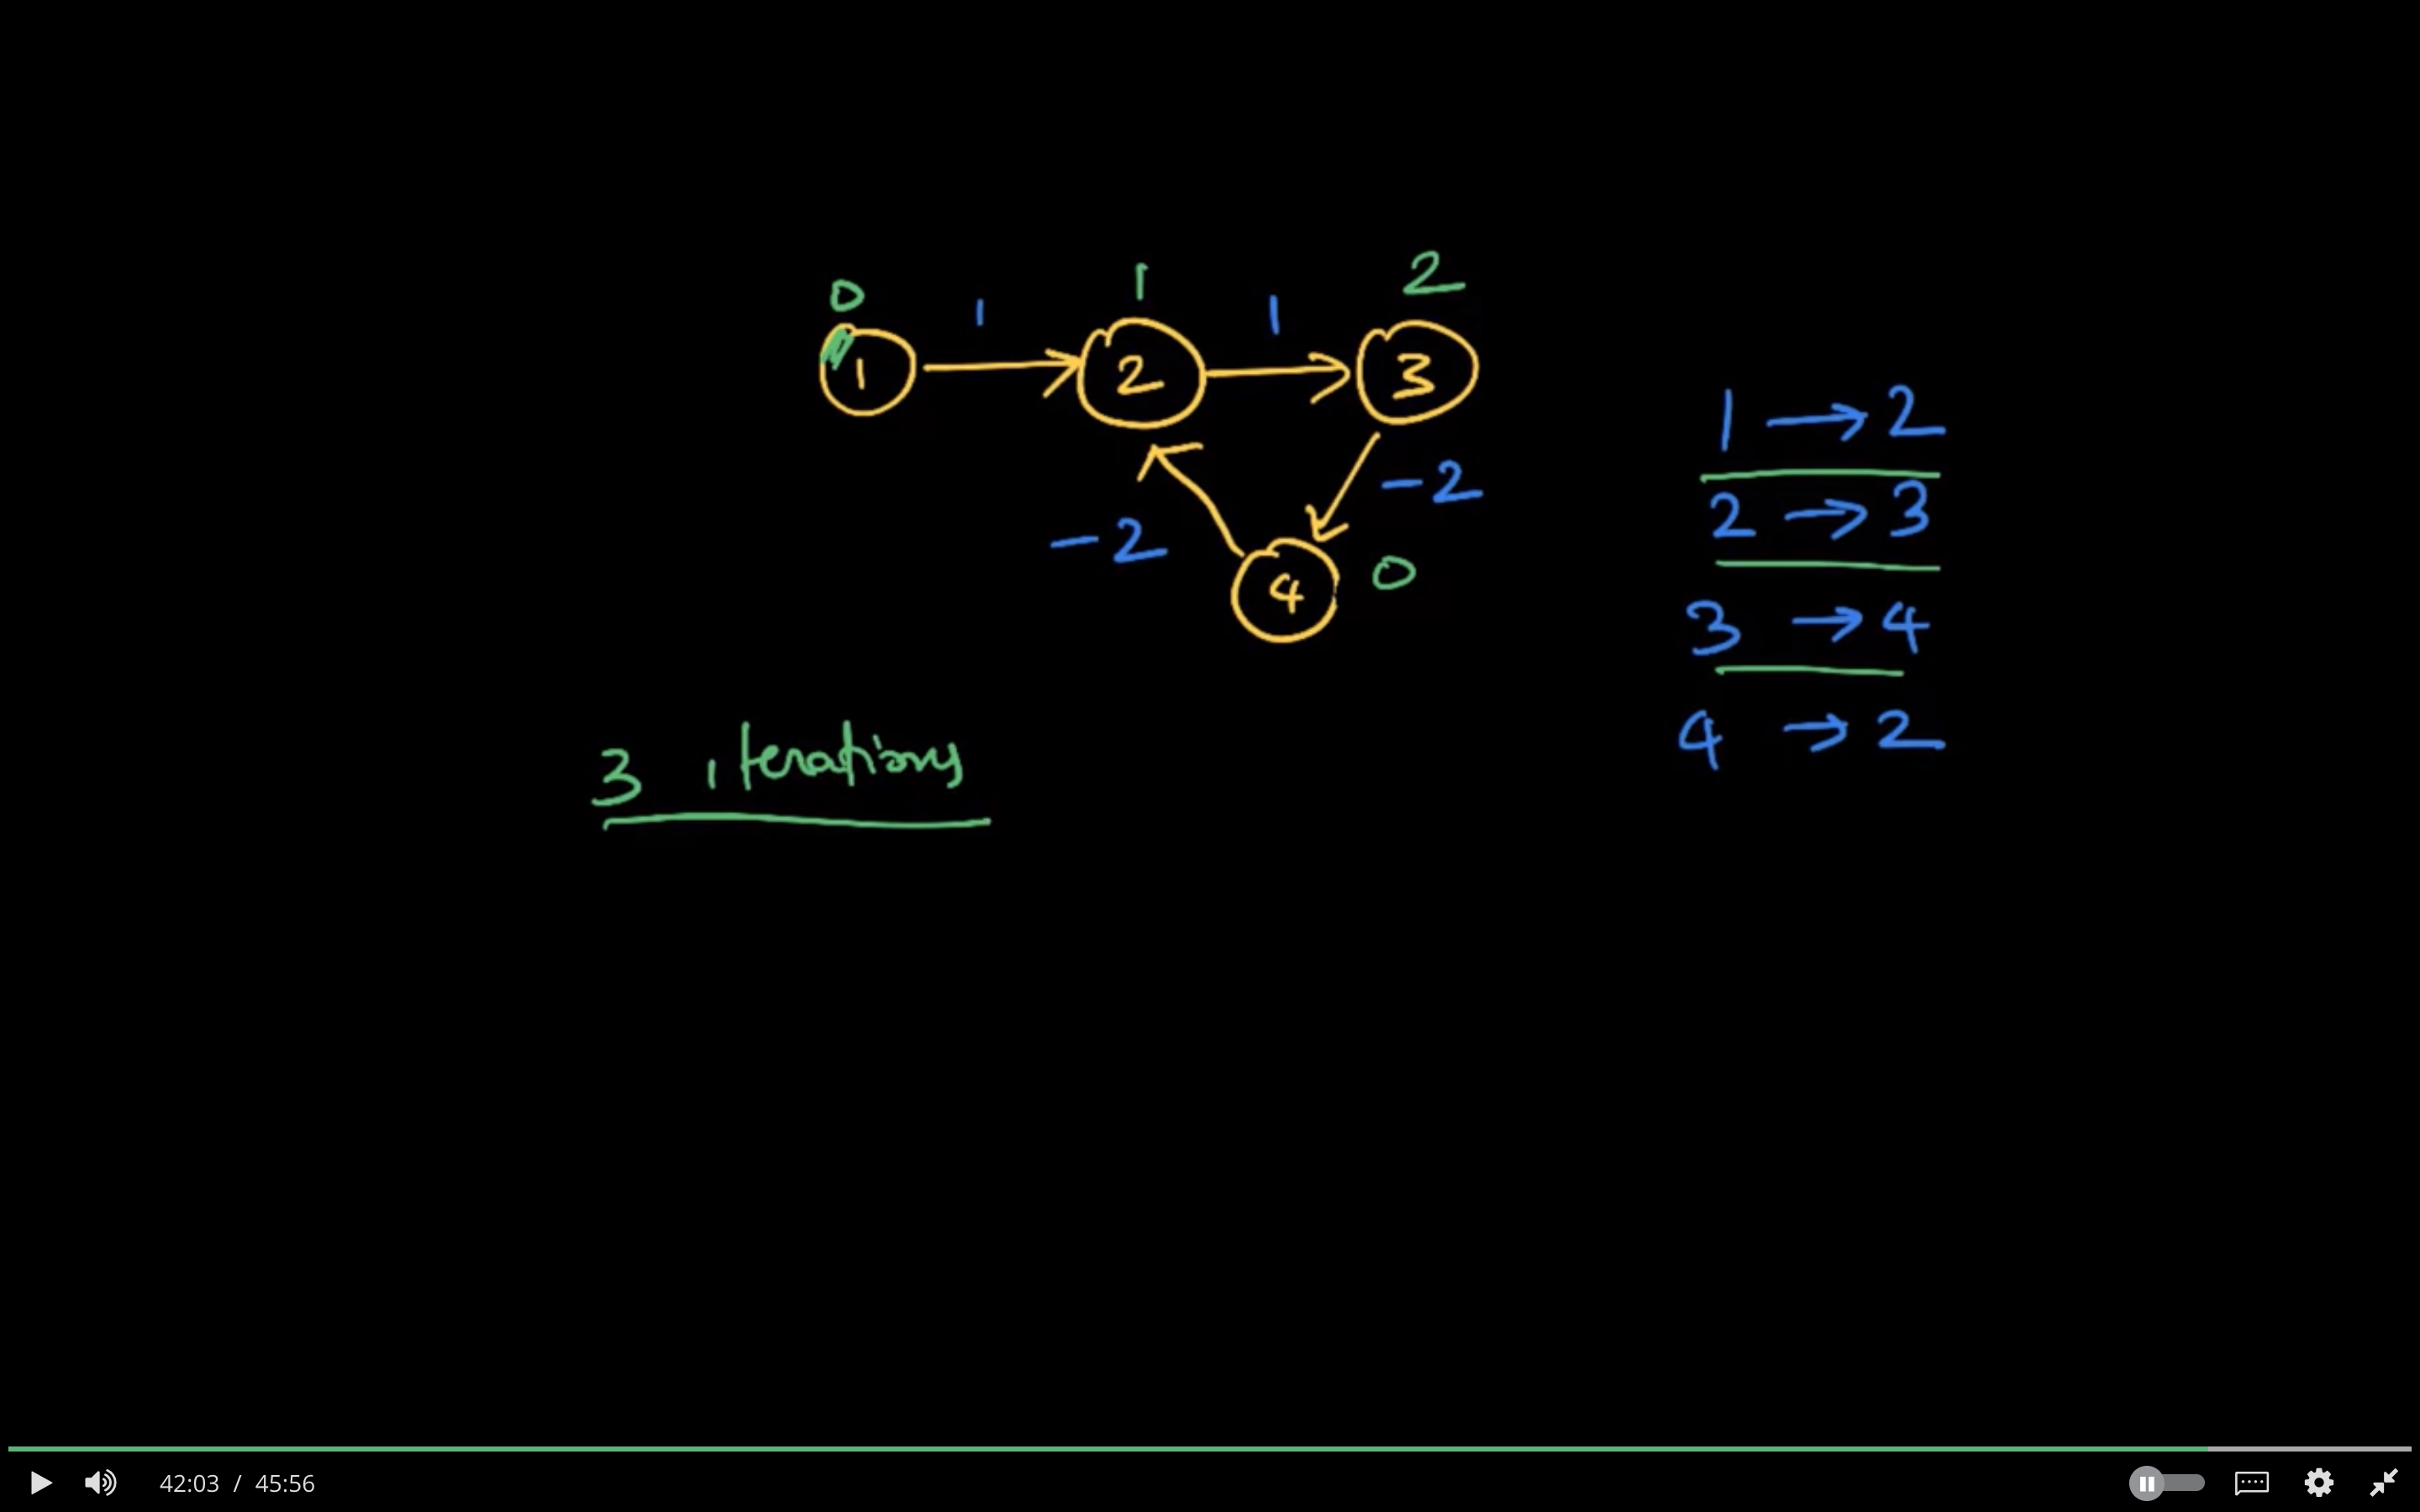 0 1 1 1 2
1 2 3
-2 -2
4 0
1 → 2
2 → 3
3 → 4
4 → 2
3 iterations
42:03 / 45:56